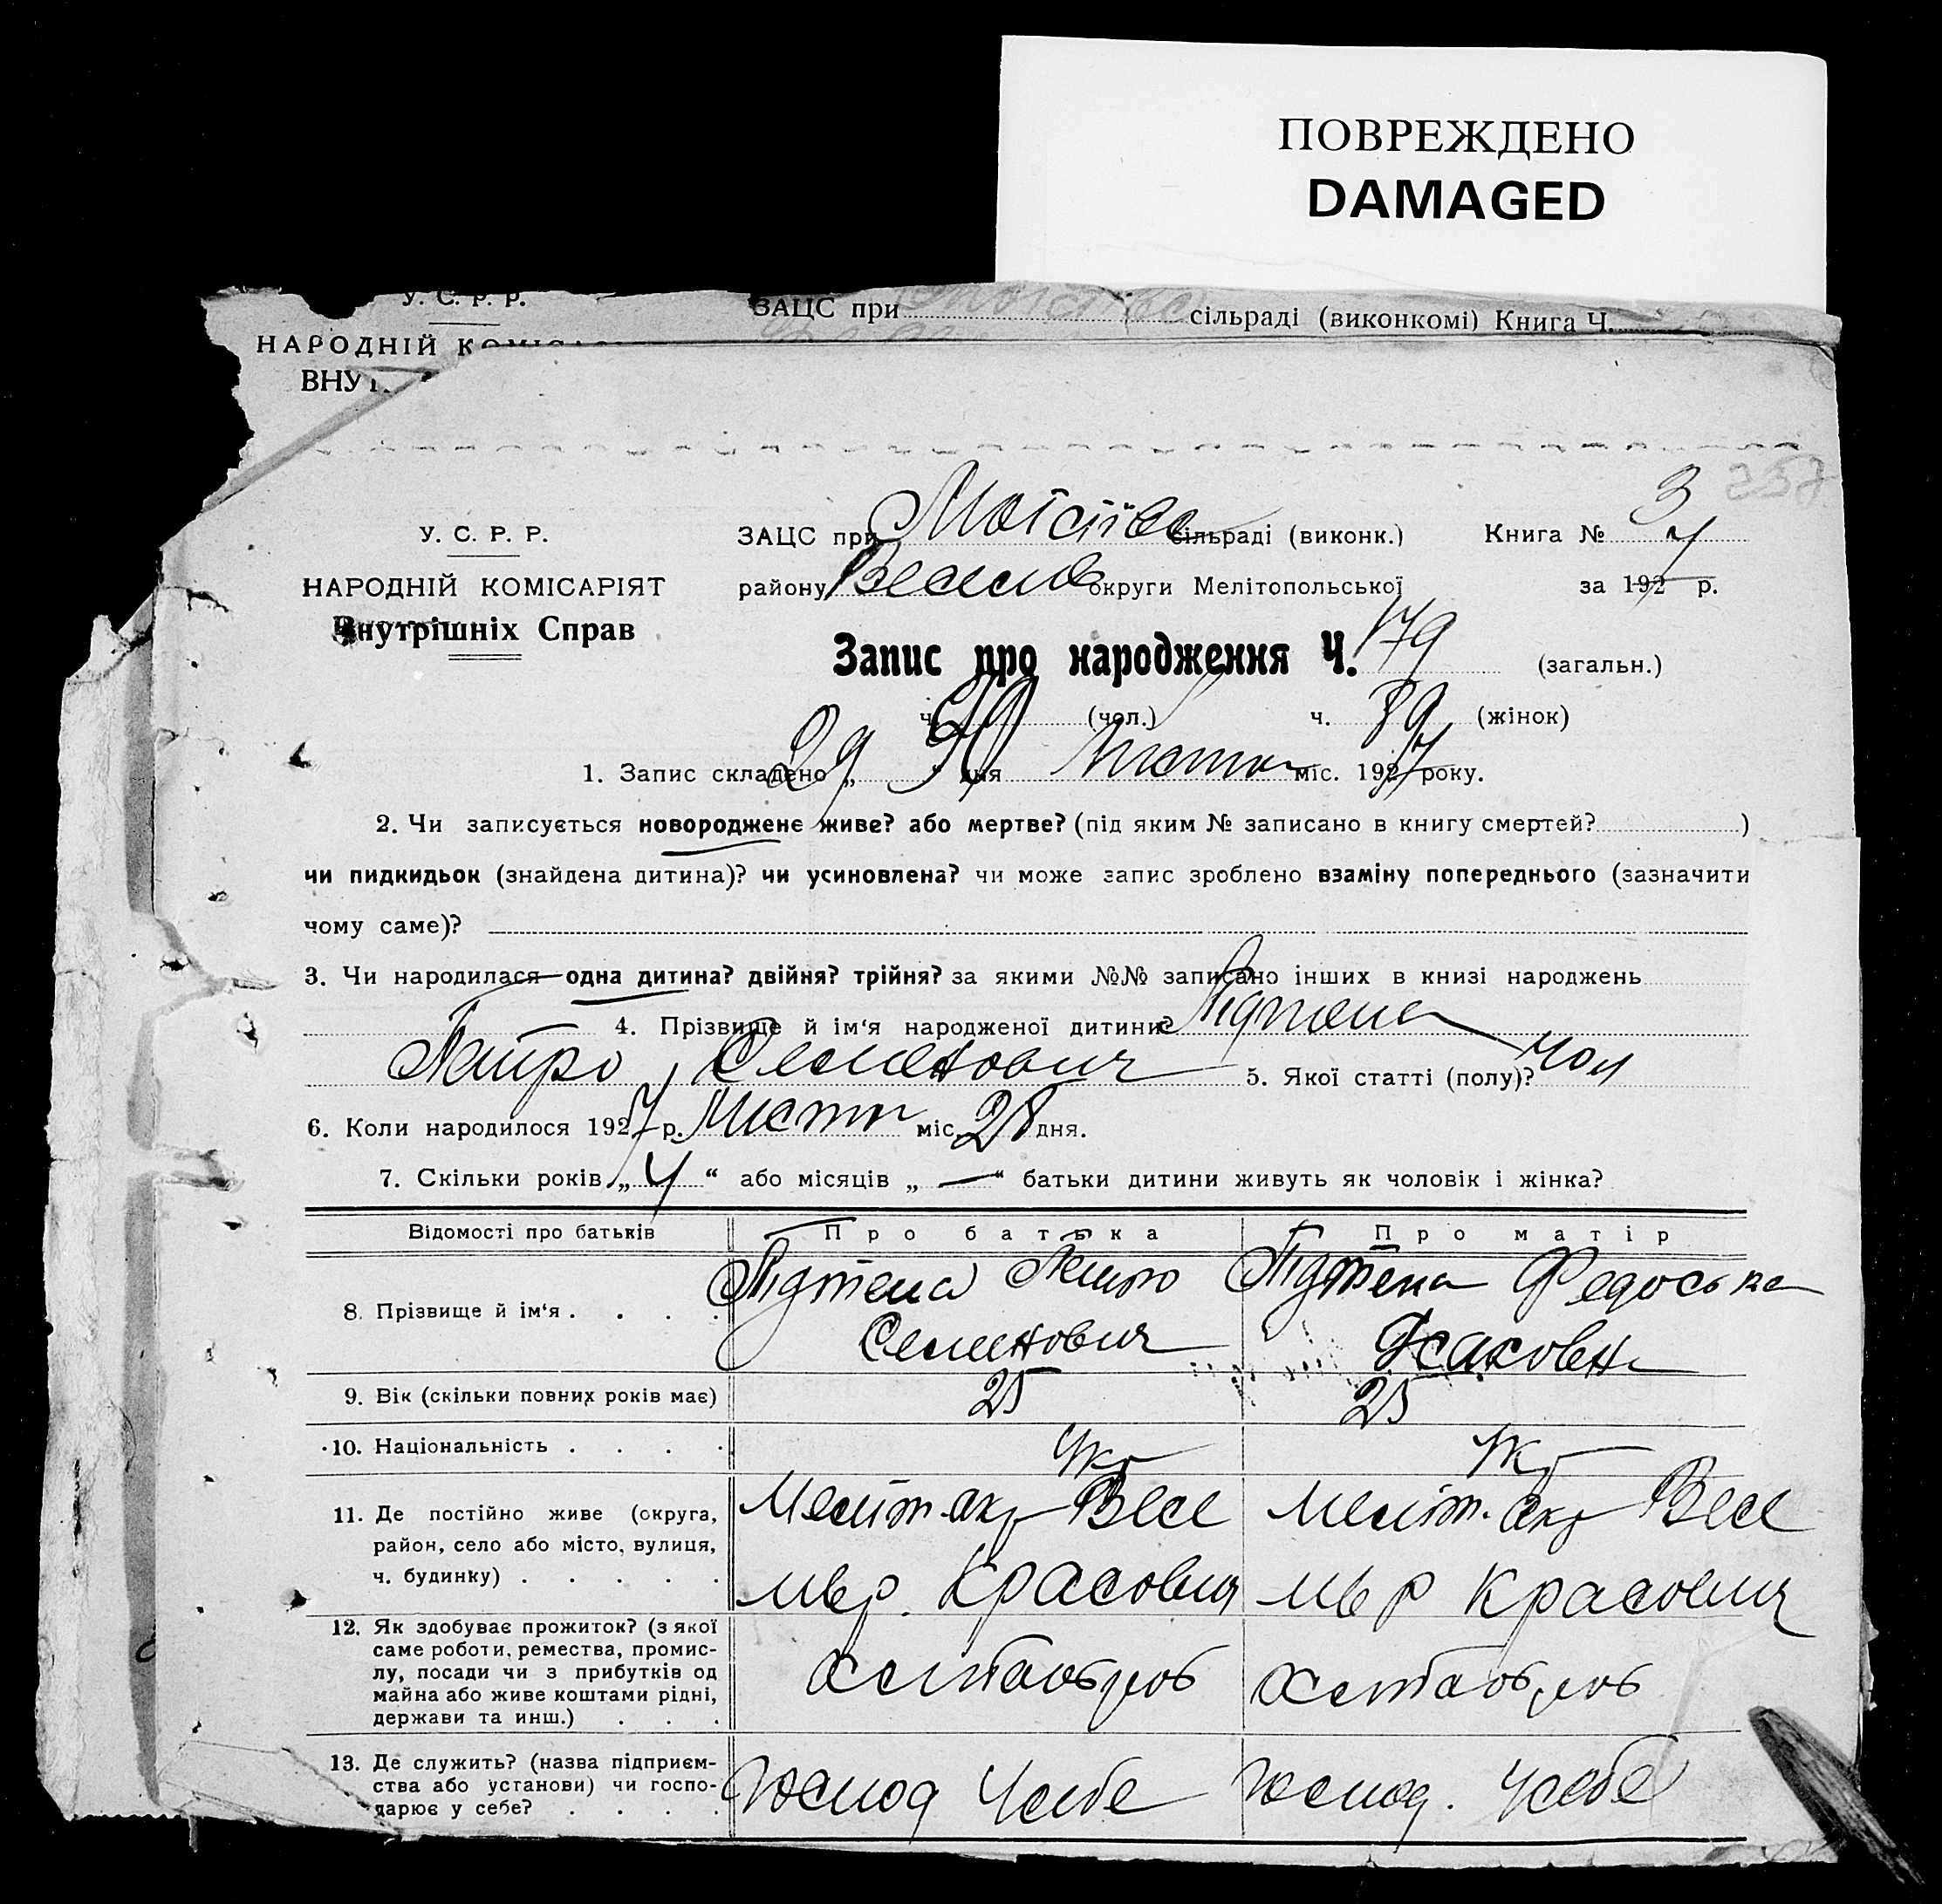 ПОВРЕЖДЕНО
DAMAGED
У. С. Р. Р.
ЗАЦС при сільраді (виконкомі) Книга Ч.
НАРОДНІЙ
У. С. Р. Р. ЗАЦС при сільраді (виконк.) Книга № 3
НАРОДНІЙ КОМІСАРІЯТ району Весел округи Мелітопольської за 1927 р.
Внутрішніх Справ
Запис про народження Ч. 179 (загальн.)
ч. 90 (чол.) ч. 89 (жінок)
1. Запис складено „29“ дня Листоп міс. 1927 року.
2. Чи записується новороджене живе? або мертве? (під яким № записано в книгу смертей? )
чи пидкидьок (знайдена дитина)? чи усиновлена? чи може запис зроблено взаміну попереднього (зазначити
чому саме)?
3. Чи народилася одна дитина? двійня? трійня? за якими №№ записано інших в книзі народжень
4. Прізвище й ім‘я народженої дитини?
Петро Семенович 5. Якої статті (полу)? чол
6. Коли народилося 1927 р. Листоп міс. 28 дня.
7. Скільки років „4“ або місяців „—“ батьки дитини живуть як чоловік і жінка?
Відомості про батьків Про батька Про матір
8. Прізвище й ім‘я . . . . Федоська
Семенович Ісаковна
9. Вік (скільки повних років має) 25 25
10. Національність . . . . Укр Укр
11. Де постійно живе (округа, Меліт. окр Весе Меліт. окр Весе
район, село або місто, вулиця,
ч. будинку) . . . . .
12. Як здобуває прожиток? (з якої
саме роботи, ремества, промис-
лу, посади чи з прибутків од хлібороб хлібороб
майна або живе коштами рідні,
держави та инш.) . . .
13. Де служить? (назва підприєм-
ства або установи) чи госпо- Господ у себе Господ. у себе
дарює у себе? . . . .